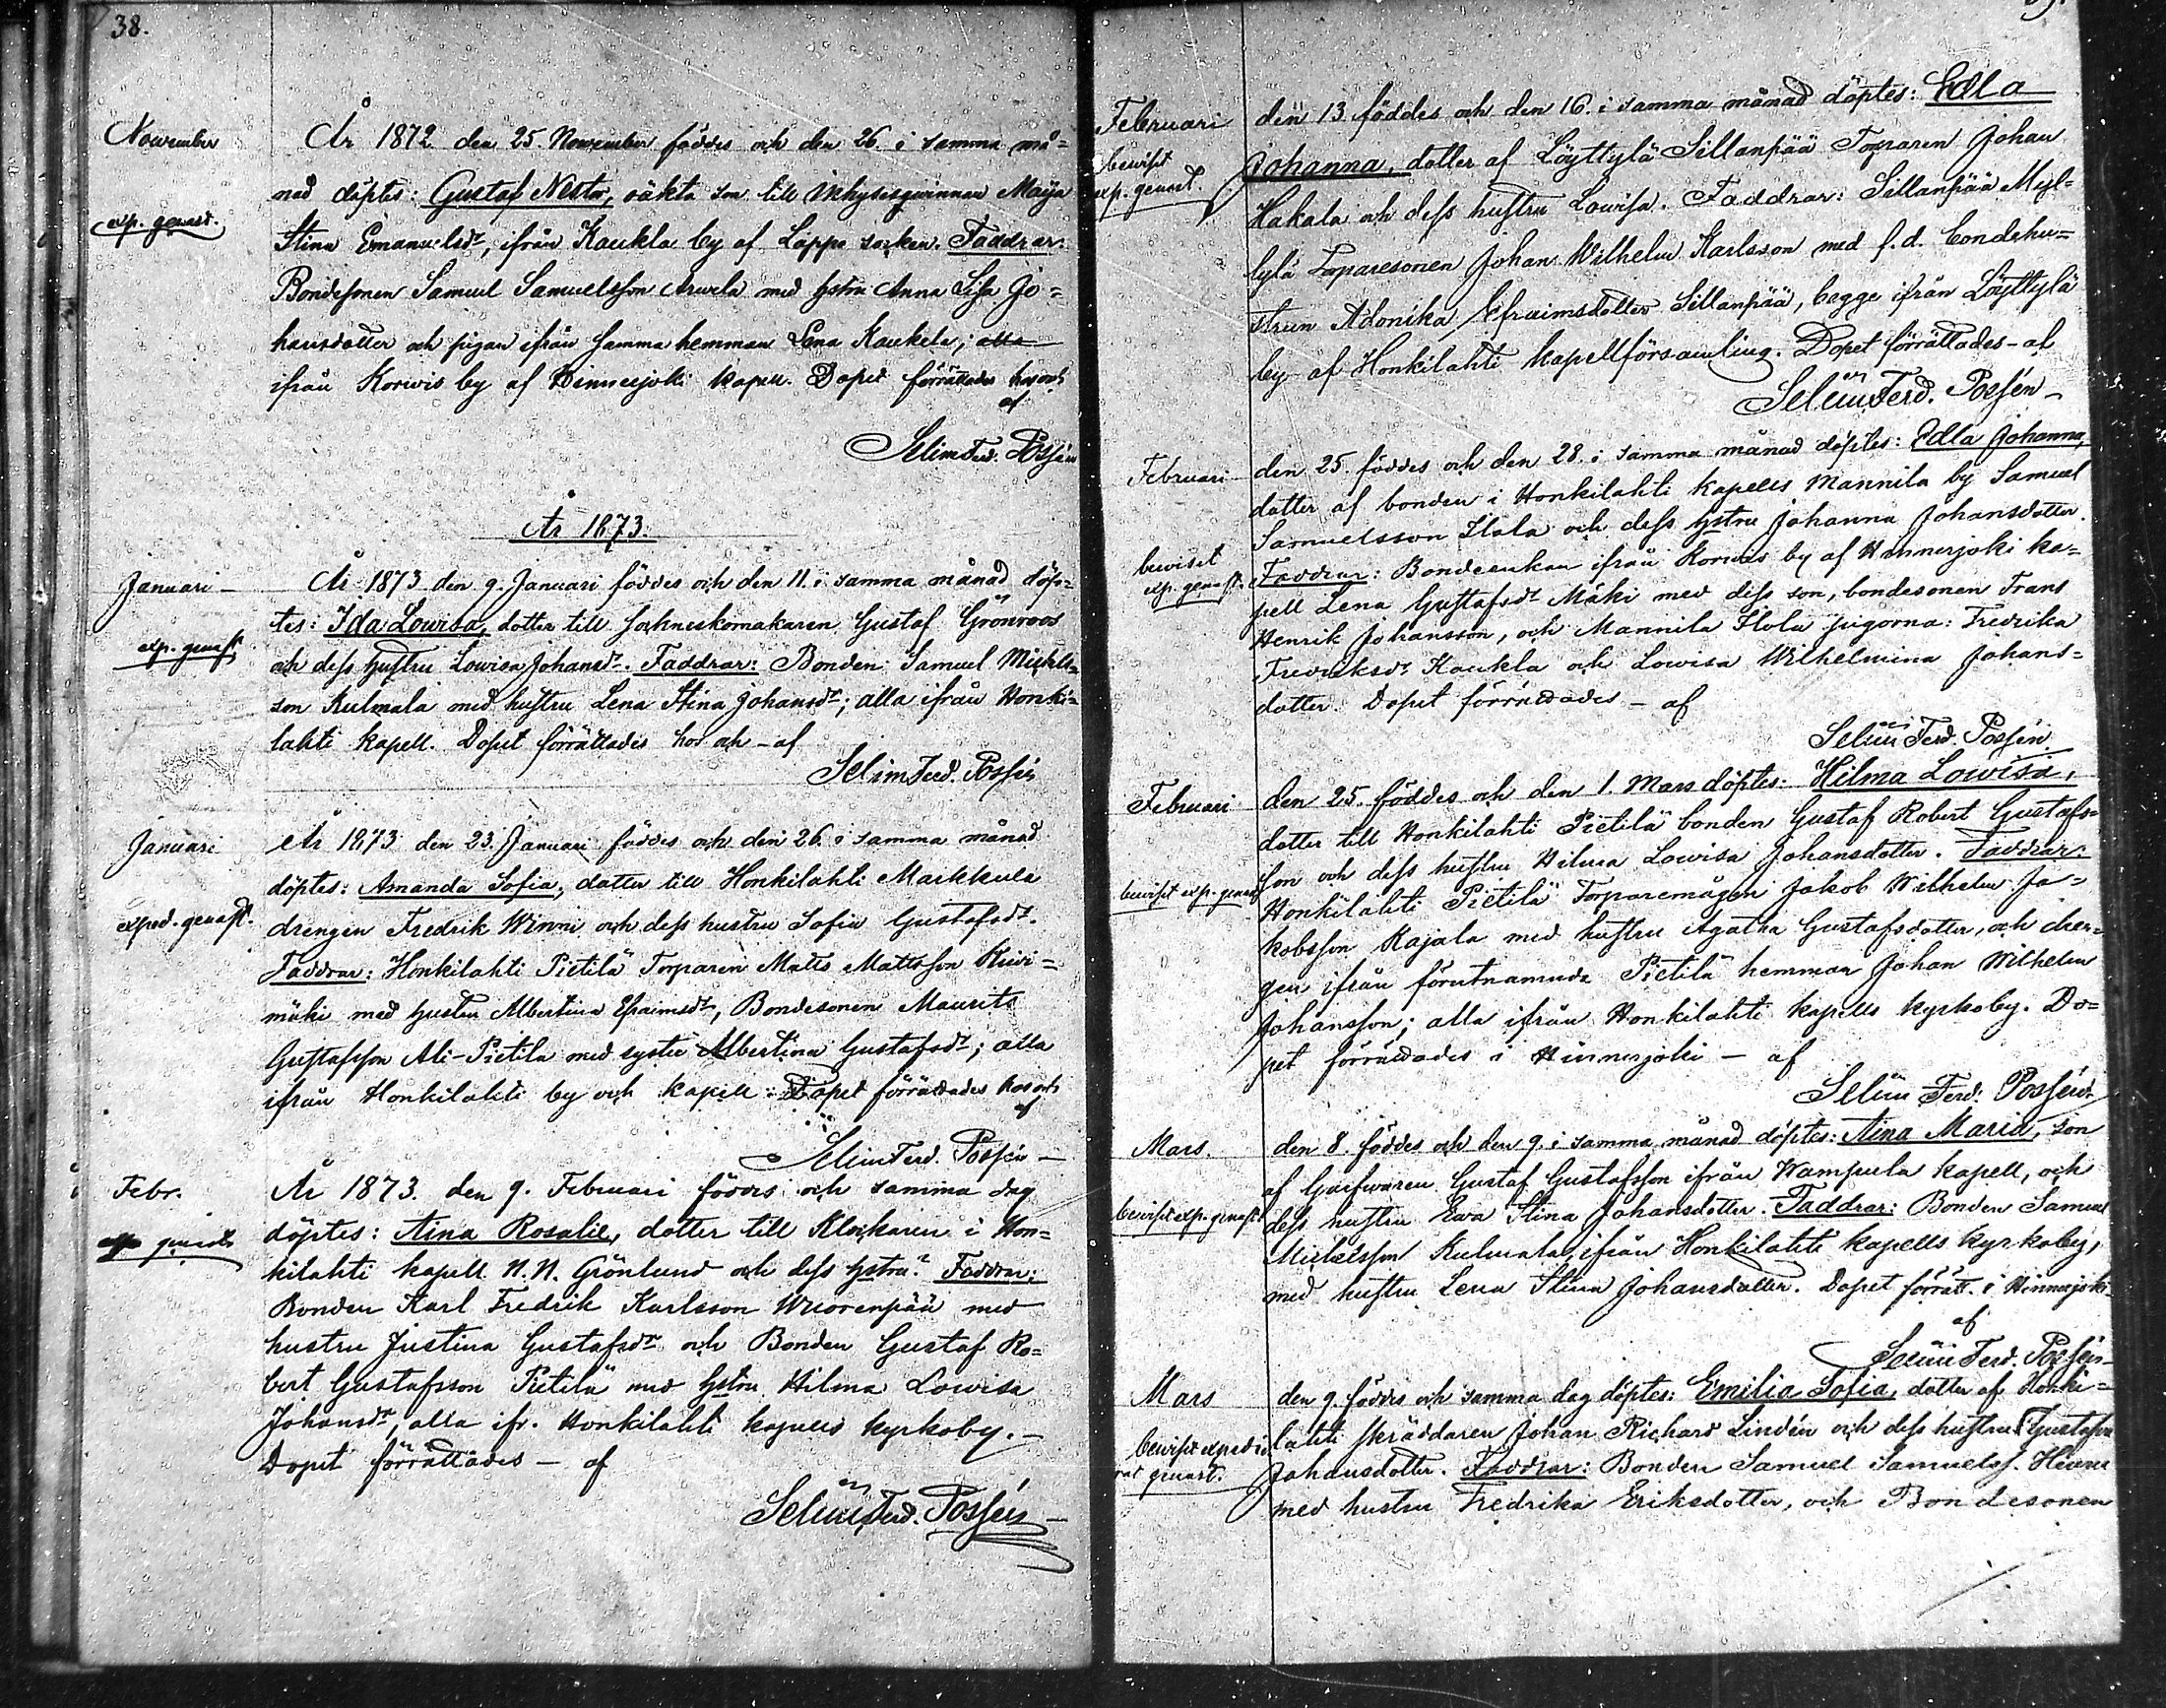 38.
November
exp. genast.
År 1872 den 25. November föddes och den 26. i samma må=
nad döptes: Gustaf Nestor, oäkta son till Inhysisqvinnan Maija
Stina Emanuelsdr, ifrån Kaukla by af Lappi socken. Faddrar:
Bondesonen Samuel Samuelsson Arvela med hstru Anna Lisa Jo=
hansdotter och pigan ifrån samma hemman Lena Kaukela; alla
ifrån Korwis by af Hinnerjoki kapell. Dopet förrättades hos och
af
Selim Ferd. Possén
År 1873.
Januari
exp. genast
År 1873 den 9. Januari föddes och den 11. i samma månad döp=
tes: Ida Lowisa, dotter till Sockneskomakaren Gustaf Grönroos
och dess hustru Lowisa Johansdr. Faddrar: Bonden Samuel Michels=
son Kulmala med hustru Lena Stina Johansdr; alla ifrån Honki=
lahti kapell. Dopet förrättades hos och - af
Selim Ferd. Possén
Januari
exped. genast.
År 1873 den 23. Januari föddes och den 26. i samma månad
döptes: Amanda Sofia, dotter till Honkilahti Markkula
drengen Fredrik Winni och dess hustru Sofia Gustafsdr.
Faddrar: Honkilahti Pietilä Torparen Matts Mattsson Kiwi=
mäki med hustru Albertina Efraimsdr, Bondesonen Maurits
Gustafsson Ali-Pietila med syster Albertina Gustafsdr; alla
ifrån Honkilahti by och kapell. Dopet förrättades hos och
af
Selim Ferd. Possén
Febr.
exp genast
År 1873. den 9. Februari föddes och samma dag
döptes: Aina Rosalie, dotter till Klockaren i Hon=
kilahti kapell N.N. Grönlund och dess hstru? Faddrar:
Bonden Karl Fredrik Karlsson Wuorenpää med
hustru Justina Gustafsdr och Bonden Gustaf Ro=
bert Gustafsson Pietilä med hstru Hilma Lowisa
Johansdr, alla ifr. Honkilahti kapells kyrkoby.
Dopet förrättades - af
Selim Ferd. Possén
Februari
bewiset
exp. genast.
den 13. föddes och den 16. i samma månad döptes: Edla
Johanna, dotter af Löyttylä Sillanpää Torparen Johan
Hakala och dess hustru Lowisa. Faddrar: Sillanpää Myl=
lylä Torparesonen Johan Wilhelm Karlsson med f.d. bondehu=
strun Adonika Efraimsdotter Sillanpää, begge ifrån Löyttylä
by af Honkilahti kapellförsamling. Dopet förrättades - af
Selim Ferd. Possén
Februari
bewiset
exp. genast.
den 25. föddes och den 28. i samma månad döptes: Edla Johanna,
dotter af bonden i Honkilahti kapells Mannila by Samuel
Samuelsson Ilola och dess hstru Johanna Johansdotter.
Faddrar: Bondeenkan ifrån Korwis by af Hinnerjoki ka=
pell Lena Gustafsdr Mäki med dess son, bondesonen Frans
Henrik Johansson, och Mannila Ilola pigorna: Fredrika
Fredriksdr Kaukla och Lowisa Wilhelmina Johans=
dotter. Dopet förrättades - af
Selim Ferd. Possén.
Februari
bewiset exp. genast
den 25. föddes och den 1. Mars döptes: Hilma Lowisa,
dotter till Honkilahti Pietilä bonden Gustaf Robert Gustafs=
son och dess hustru Hilma Lowisa Johansdotter. Faddrar:
Honkilahti Pietilä Torparemågen Jakob Wilhelm Ja=
kobsson Rajala med hustru Agatha Gustafsdotter, och dren=
gen ifrån förutnämnda Pietilä hemman Johan Wilhelm
Johansson; alla ifrån Honkilahti kapells kyrkoby. Do=
pet förrättades i Hinnerjoki - af
Selim Ferd. Possén.
Mars.
bewiset exp. genast.
den 8. föddes och den 9. i samma månad döptes: Aina Maria, son
af Garfwaren Gustaf Gustafsson ifrån Wampula kapell, och
dess hustru Ewa Stina Johansdotter. Faddrar: Bonden Samuel
Michelsson Kulmala, ifrån Honkilahti kapells kyrkoby,
med hustru Lena Stina Johansdotter. Dopet förrätt. i Hinnerjoki
af
Selim Ferd. Possén
Mars
bewiset expedie
rat genast.
den 9. föddes och samma dag döptes: Emilia Sofia, dotter af Honki=
lahti skräddaren Johan Richard Lindén och dess hustru Gustafva
Johansdotter. Faddrar: Bonden Samuel Samuelss.
med hustru Fredrika Eriksdotter, och Bondesonen